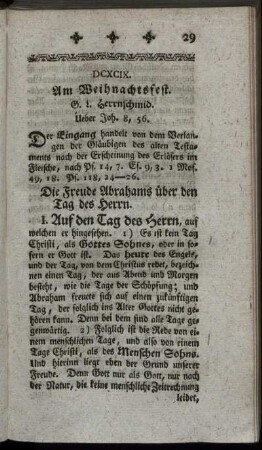 29
DCXCIX.
Am Weihnachtsfest.
G. L. Herrnschmid.
Ueber Joh. 8, 56.
Der Eingang handelt von dem Verlan-
gen der Gläubigen des alten Testa-
ments nach der Erscheinung des Erlösers im
Fleische, nach Ps. 14, 7. Es. 9, 3. 1 Mos.
49, 18. Ps. 118, 24—26.
Die Freude Abrahams über den
Tag des Herrn.
I. Auf den Tag des Herrn, auf
welchen er hingesehen. 1) Es ist kein Tag
Christi, als Gottes Sohnes, oder in so-
fern er Gott ist. Das heute des Engels,
und der Tag, von dem Christus redet, bezeich-
nen einen Tag, der aus Abend und Morgen
besteht, wie die Tage der Schöpfung; und
Abraham freuete sich auf einen zukünftigen
Tag, der folglich ins Alter Gottes nicht ge-
hören kann. Denn bei dem sind alle Tage ge-
genwärtig. 2) Folglich ist die Rede von ei-
nem menschlichen Tage, und also von einem
Tage Christi, als des Menschen Sohns.
Und hierinn liegt eben der Grund unserer
Freude. Denn Gott nur als Gott, nur nach
der Natur, die keine menschliche Zeitrechnung
leidet,